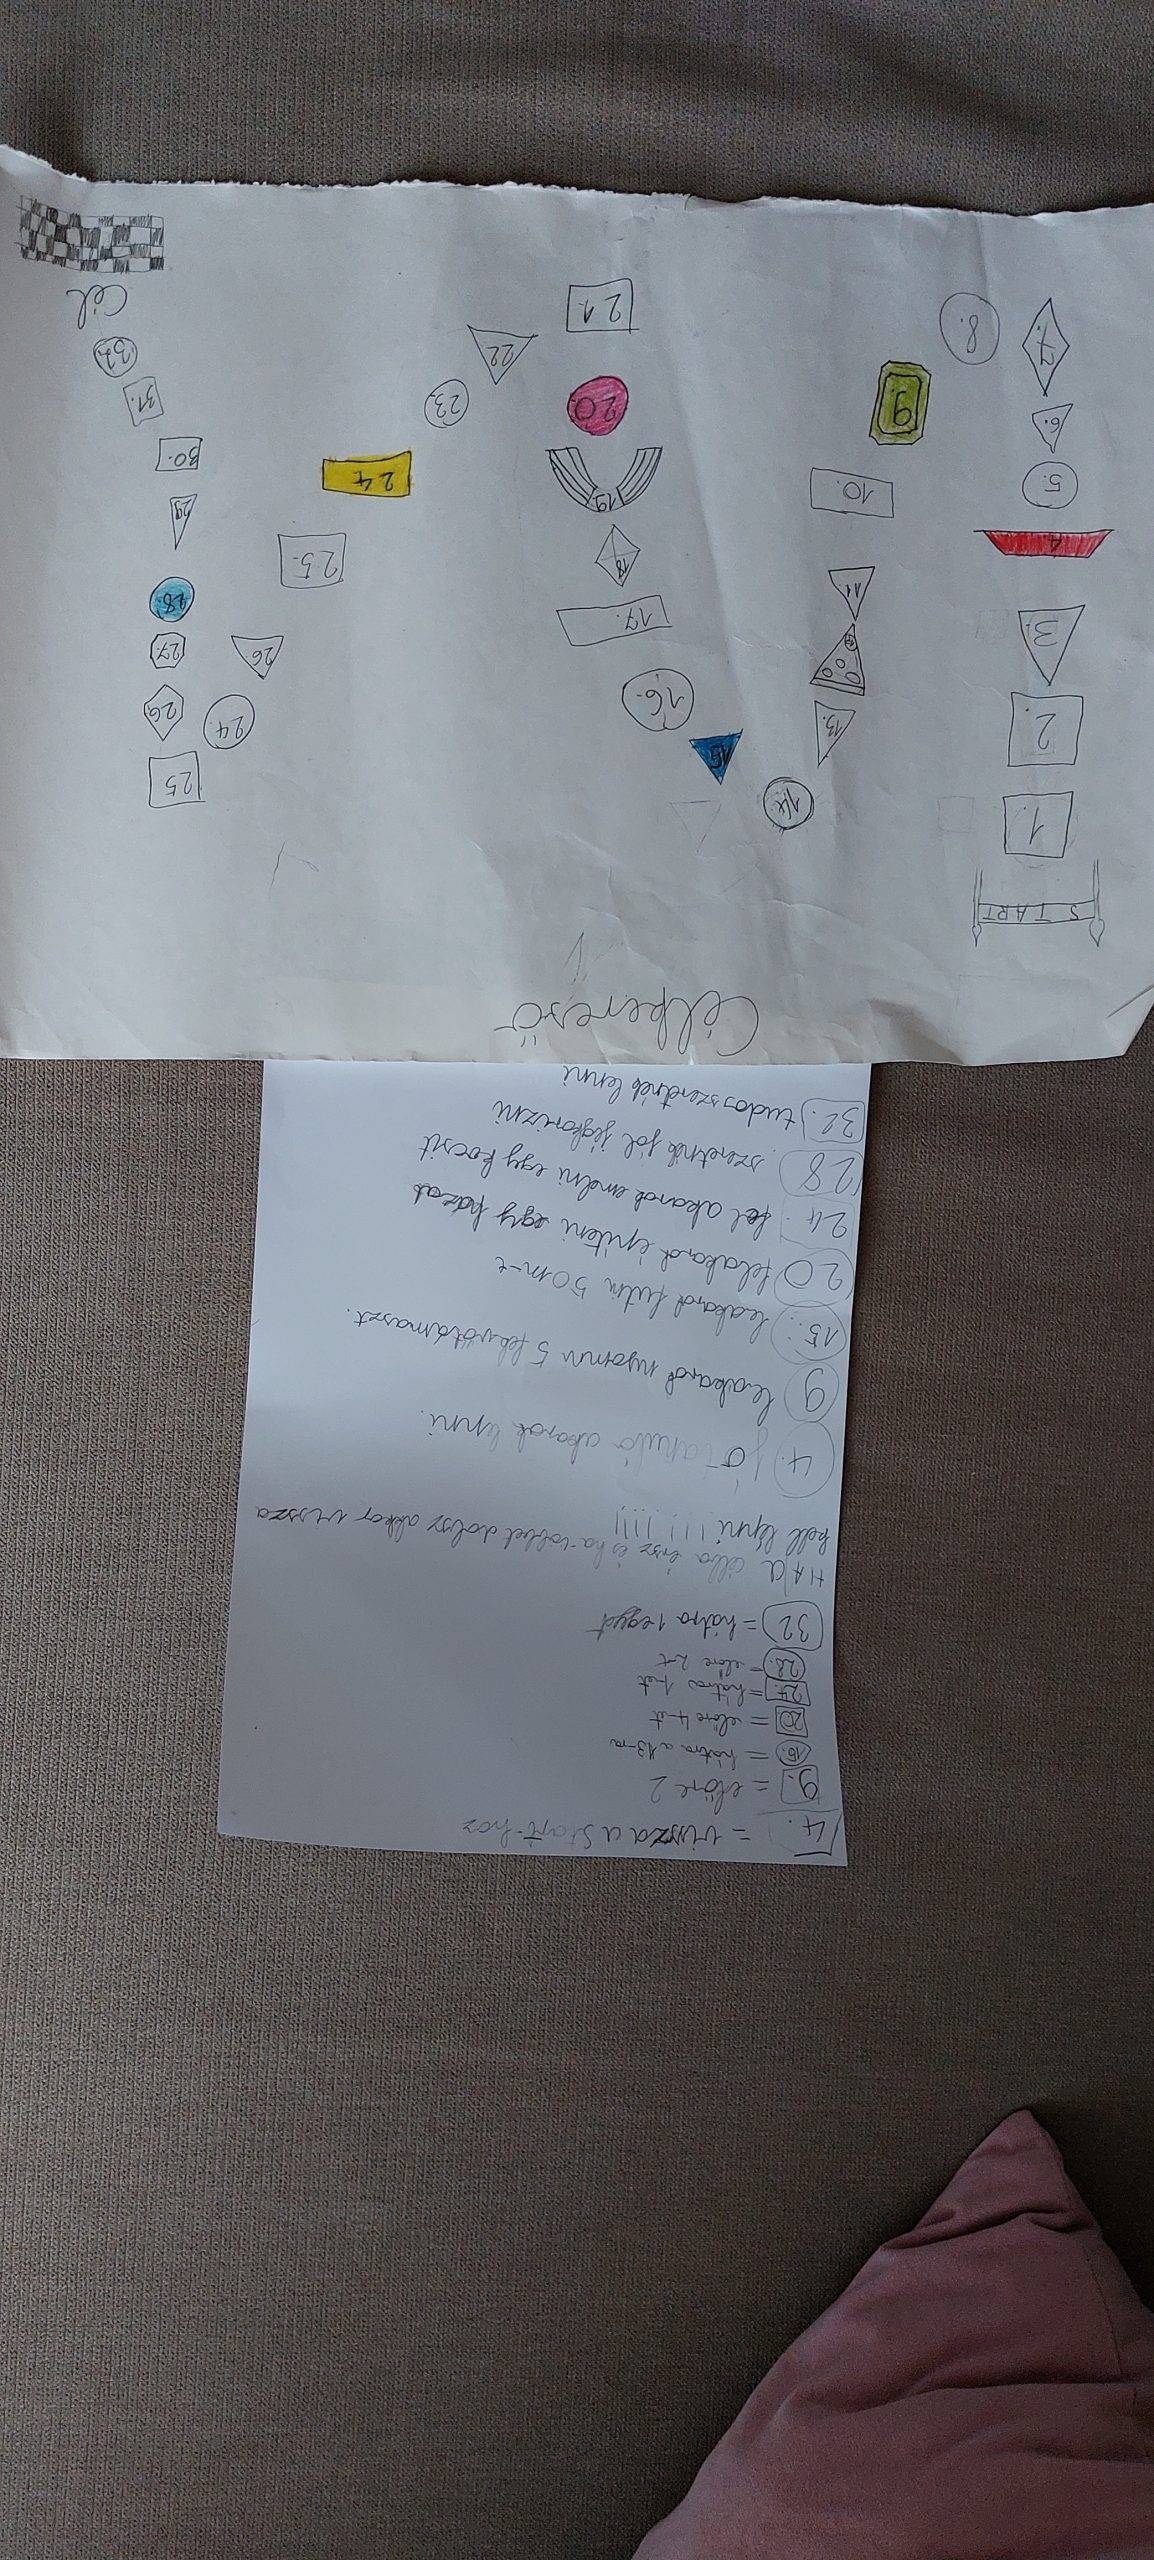 Célkereső
START
1.
2.
3.
4
5.
6.
7.
8.
9.
10.
11.
12
13.
14.
15
16.
17.
18.
19.
20.
21.
22.
23.
24
25.
26.
24.
25
26
27.
28.
29.
30.
31.
32.
Cél
4. = vissza a Start-hoz
9. = előre 2
15. = hátra a 13-ra
20 = előre 4-et
24. = hátra 1-et
28. = előre 2-t
32 = hátra 1 egyet
HA a célba érsz és ha többet dobsz akkor vissza
kell lépni!!!!!!!
4. jó tanuló akarok lenni.
9 leakarok nyomni 5 fekvőtámaszt.
15. leakarok futni 50m-t
20 felakarok építeni egy házat
24. fel akarok emelni egy kocsit
28 szeretnék jól jégkorizni
32. tudós szeretnék lenni